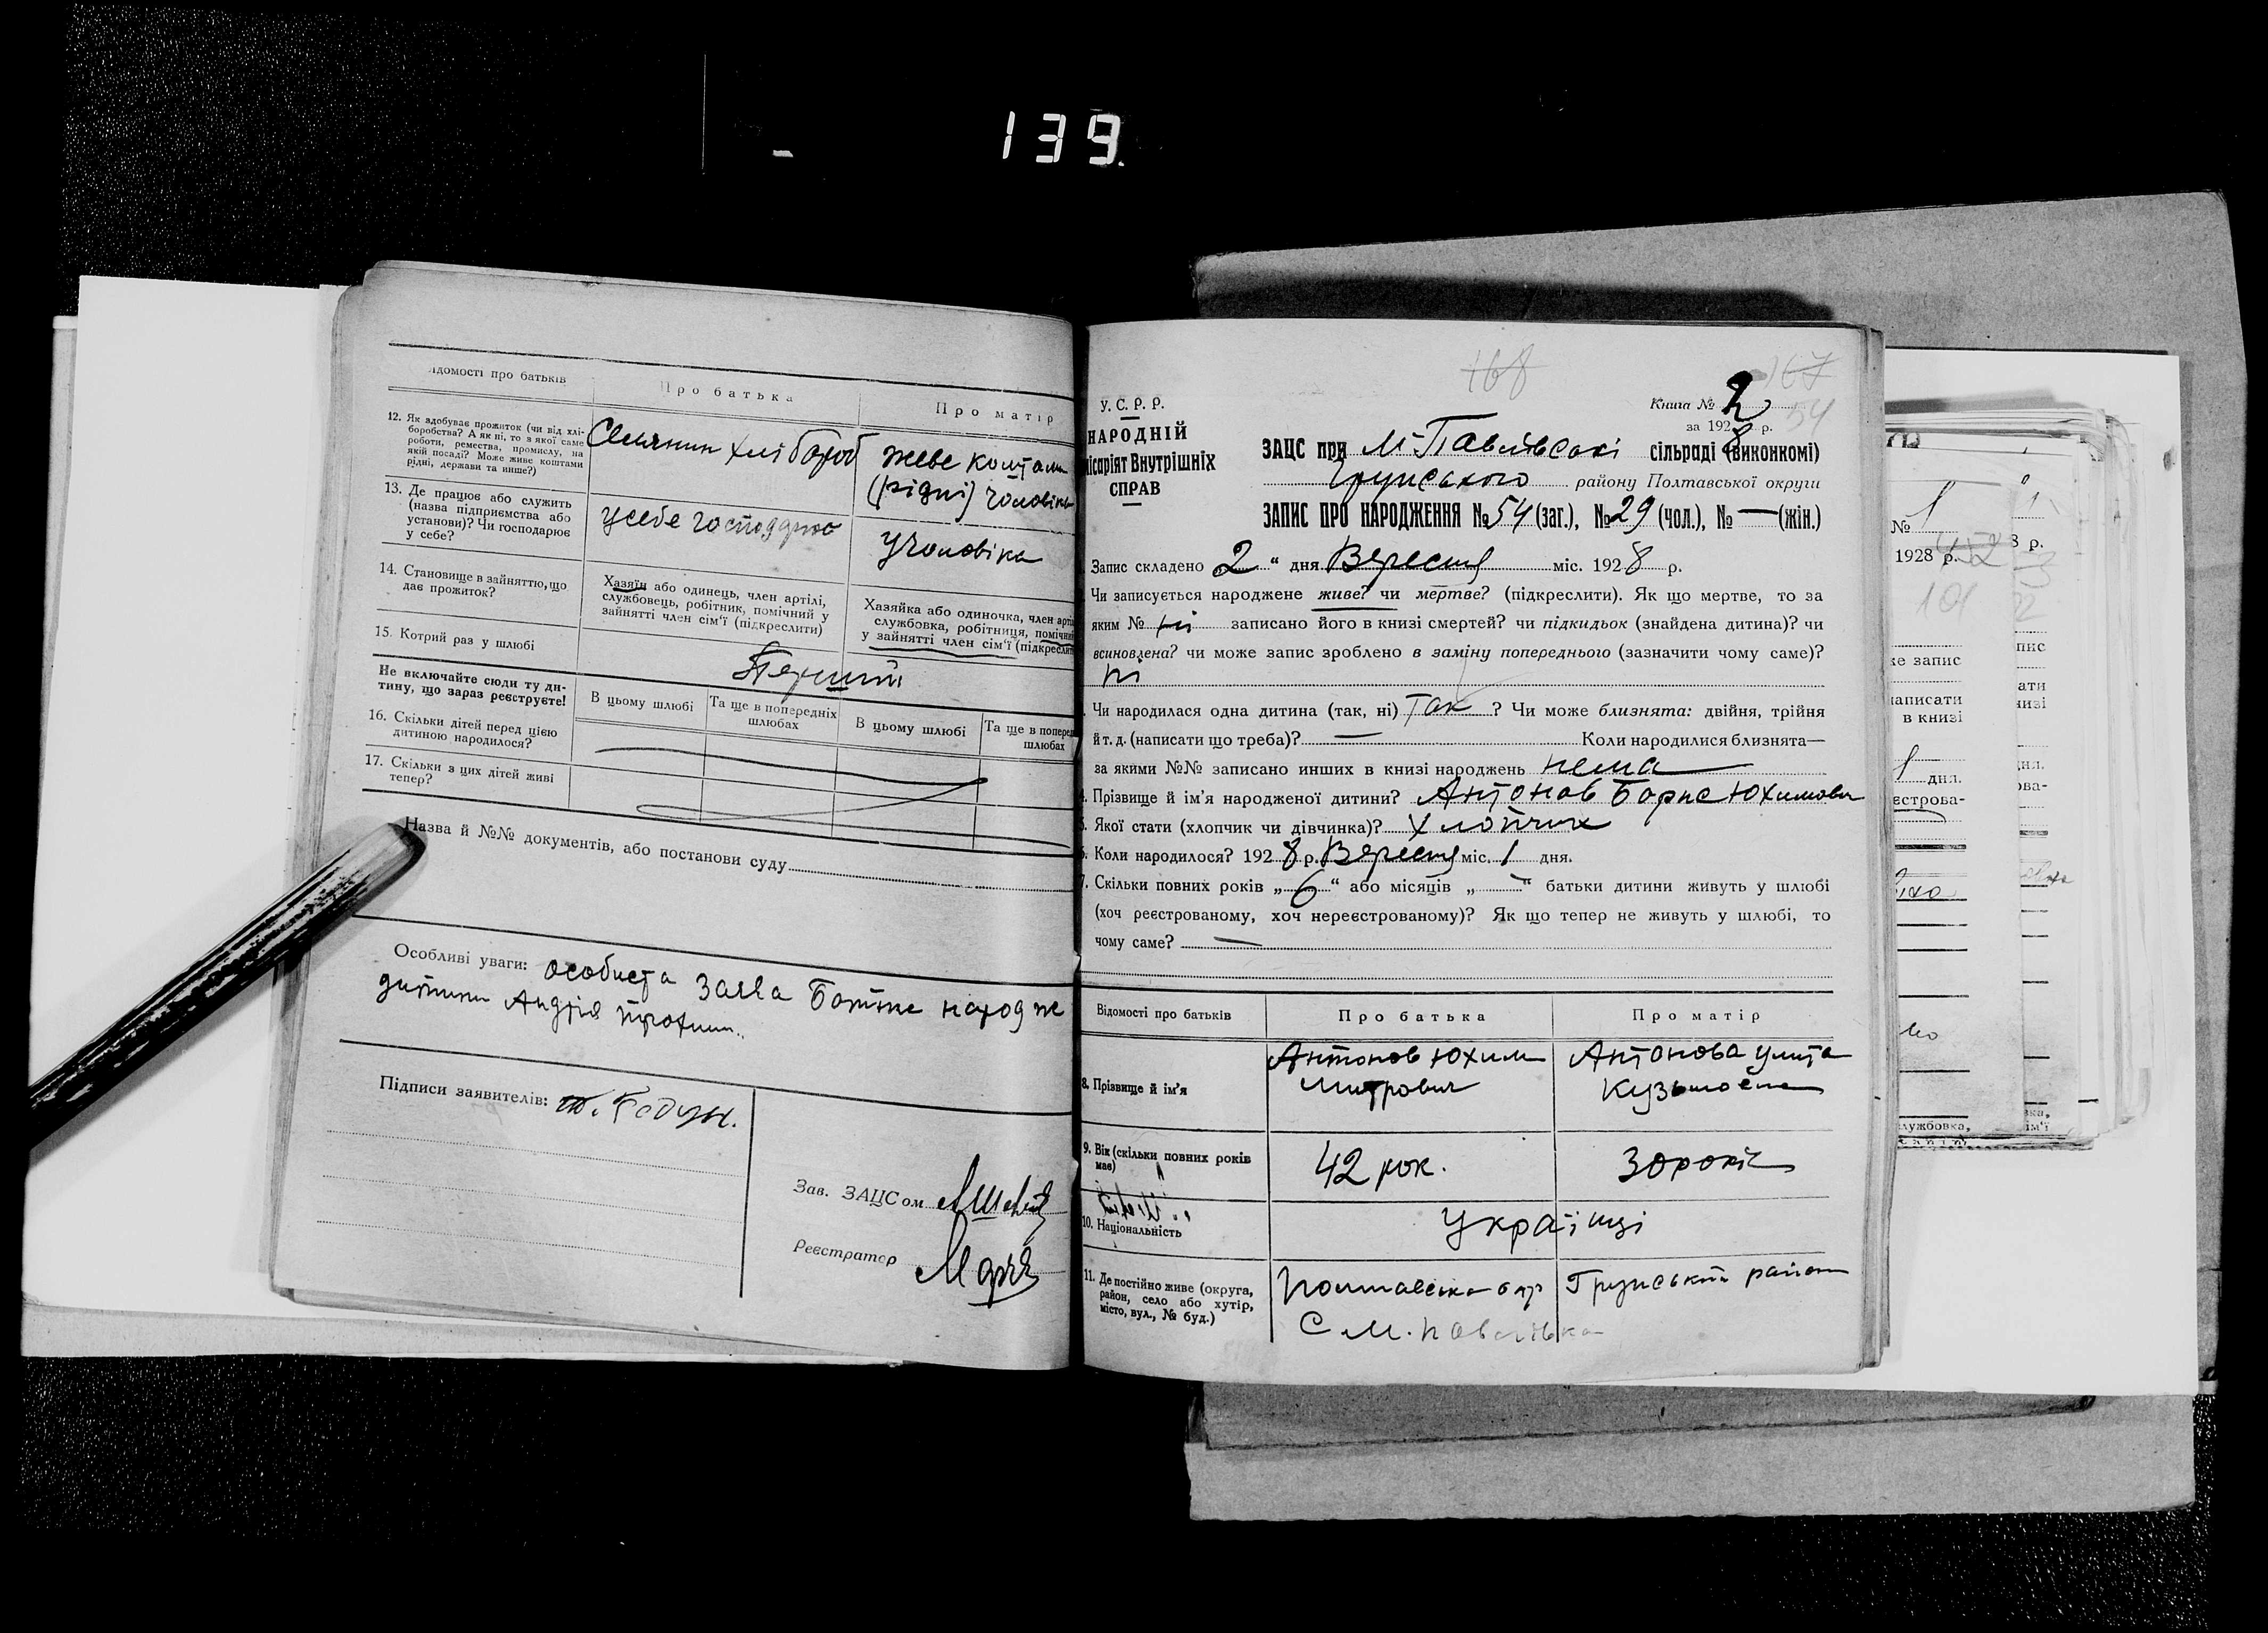 139.
Відомості про батьків
Про батька
Про матір
12. Як здобуває прожиток (чи від хлі-
боробства? А як ні, то з якої саме
роботи, ремества, промислу, на
якій посаді? Може живе коштами
рідні, держави та инше?)
Селянин хлібороб
живе коштами
(рідні) чоловіка
13. Де працює або служить
(назва підприємства або
установи)? Чи господарює
у себе?
у себе
у чоловіка
14. Становище в зайняттю, що
дає прожиток?
Хазяїн або одинець, член артілі,
службовець, робітник, помічний у
зайнятті член сім'ї (підкреслити)
Хазяйка або одиночка, член арті
службовка, робітниця, помічни
у зайнятті член сім'ї (підкресли
15. Котрий раз у шлюбі
Перший
Не включайте сюди ту ди-
тину, що зараз реєструєте!
В цьому шлюбі
Та ще в попередніх
шлюбах
В цьому шлюбі
Та ще в поперед
шлюбах
16. Скільки дітей перед цією
дитиною народилося?
17. Скільки з цих дітей живі
тепер?
Назва й №№ документів, або постанови суду
Особливі уваги: особиста заява
дитини Андрія
Підписи заявителів:
Зав. ЗАЦСом
Реєстратор
168
167
54
У. С. Р. Р.
НАРОДНІЙ
місаріят Внутрішніх
СПРАВ
Книга № 2
за 1928 р.
ЗАЦС при М-Павлівські сільраді (виконкомі)
Грунського району Полтавської округи
ЗАПИС ПРО НАРОДЖЕННЯ № 54 (заг.), № 29 (чол.), № — (жін.)
Запис складено „2“ дня Вересня міс. 1928 р.
Чи записується народжене живе? чи мертве? (підкреслити). Як що мертве, то за
яким № ні записано його в книзі смертей? чи підкидьок (знайдена дитина)? чи
всиновлена? чи може запис зроблено в заміну попереднього (зазначити чому саме)?
ні
Чи народилася одна дитина (так, ні) Так ? Чи може близнята: двійня, трійня
й т. д. (написати що треба)? — Коли народилися близнята—
за якими №№ записано инших в книзі народжень нема
4. Прізвище й ім'я народженої дитини? Антонов Борис Юхимович
5. Якої стати (хлопчик чи дівчинка)? Хлопчик
6. Коли народилося? 1928 р. Вересня міс. 1 дня.
7. Скільки повних років „6“ або місяців „—“ батьки дитини живуть у шлюбі
(хоч реєстрованому, хоч нереєстрованому)? Як що тепер не живуть у шлюбі, то
чому саме? —
Відомості про батьків
Про батька
Про матір
8. Прізвище й ім'я
Антонов Юхим
Митрович
Антонова Улита
Кузьмовна
9. Вік (скільки повних років
має)
42 рок.
30 років
10. Національність
Українці
11. Де постійно живе (округа,
район, село або хутір,
місто, вул., № буд.)
Полтавська окр Грунський район
С М. Павлівка
№ 1
1928 р.